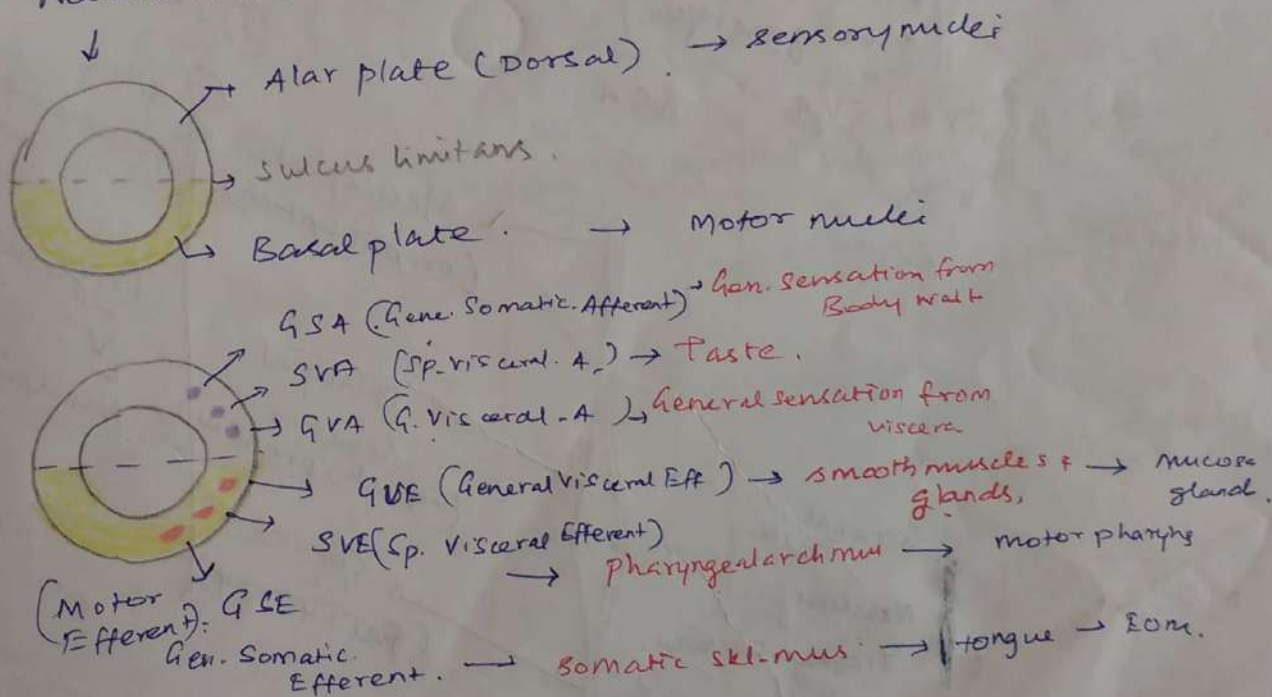 Alar plate (Dorsal). → sensory nuclei
sulcus limitans.
Basal plate. → Motor nuclei
GSA (Gene. Somatic. Afferent) → Gen. sensation from
Body wall
SVA (Sp. visceral. A.) → Taste.
GVA (G. Visceral-A) → General sensation from
viscera
GVE (General Visceral Eff) → smooth muscles & → mucosa
glands, gland.
SVE (Sp. Visceral Efferent)
→ pharyngeal arch mus → motor
(Motor
Efferent): GSE
Gen. Somatic.
Efferent. → somatic skl-mus → tongue → EOM.